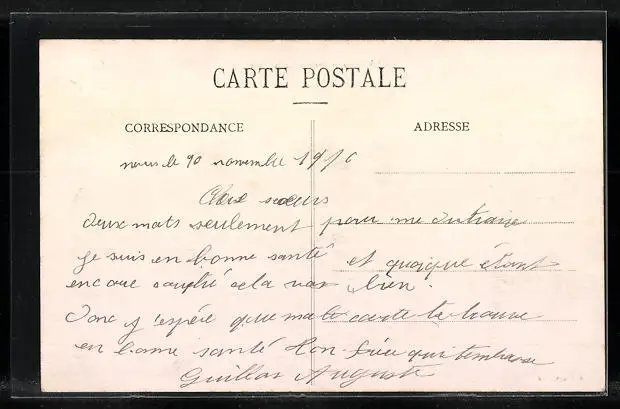 CARTE POSTALE
CORRESPONDANCE
ADRESSE
le novembre 1916
sœurs
deux mots seulement pour me
je suis en bonne santé et quoique étant
encore cela vas bien.
Donc j'espére que ma carte te trouve
en bonne santé Ton frère qui t'embrasse
Guillou Auguste